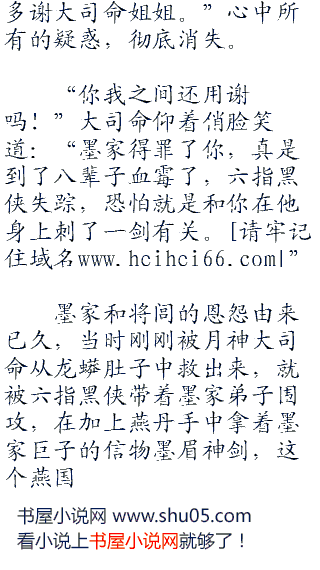 多谢大司命姐姐。”心中所
有的疑惑，彻底消失。
“你我之间还用谢
吗！”大司命仰着俏脸笑
道：“墨家得罪了你，真是
到了八辈子血霉了，六指黑
侠失踪，恐怕就是和你在他
身上刺了一剑有关。[请牢记
住域名www.hcihci66.com|”
墨家和将闾的恩怨由来
已久，当时刚刚被月神大司
命从龙蟒肚子中救出来，就
被六指黑侠带着墨家弟子围
攻，在加上燕丹手中拿着墨
家巨子的信物墨眉神剑，这
个燕国
书屋小说网 www.shu05.com
看小说上书屋小说网就够了！